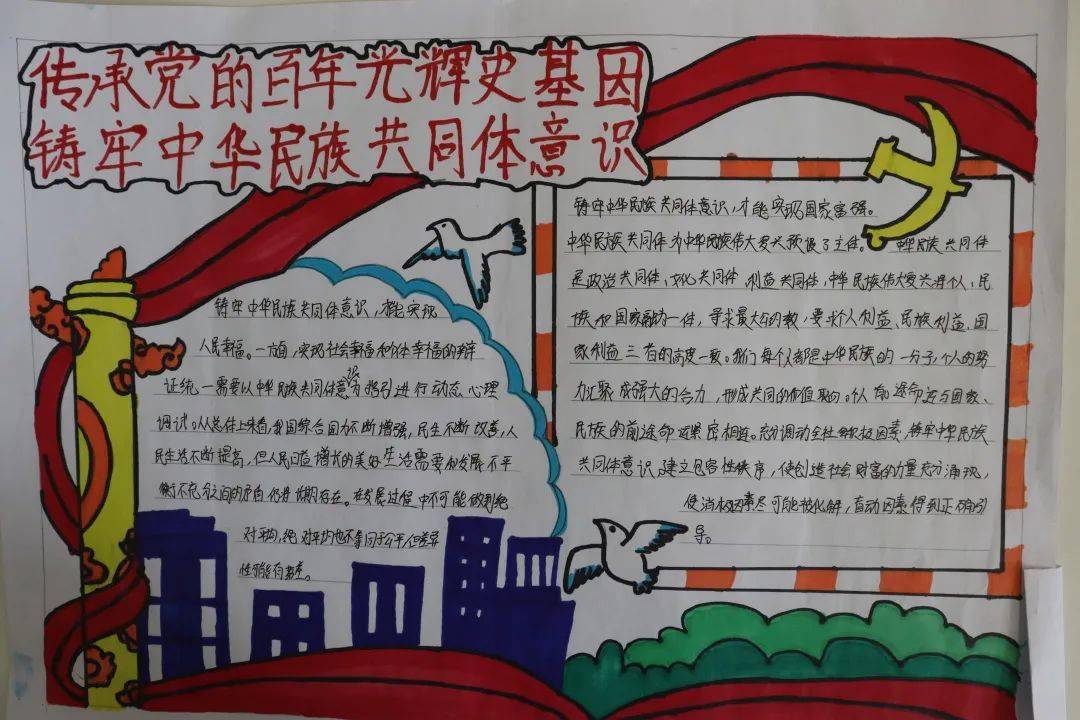 传承党的百年光辉史基因
铸牢中华民族共同体意识
铸牢中华民族共同体意识，才能实现
人民幸福。一方面，实现社会幸福和个体幸福的辩
证统一需要以中华民族共同体意识为指引进行动态心理
调试。从总体上来看，我国综合国力不断增强，民生不断改善，人
民生活不断提高，但人民日益增长的美好生活需要和发展不平
衡不充分之间的矛盾仍将长期存在。在发展过程中不可能做到绝
对平均，绝对平均也不等同于公平但差异
性可能有
铸牢中华民族共同体意识，才能实现国家富强。
中华民族共同体为中华民族伟大复兴预设了主体。中华民族共同体
是政治共同体、文化共同体、利益共同体，中华民族伟大复兴将个人、民
族和国家融为一体，寻求最大公约数，要求个人利益、民族利益、国
家利益三者的高度一致。我们每个人都是中华民族的一分子，个人的努
力汇聚成强大的合力，形成共同的价值取向。个人前途命运与国家、
民族的前途命运紧密相连。充分调动全社会积极因素，铸牢中华民族
共同体意识，建立包容性秩序，使创造社会财富的力量充分涌现，
使消极因素尽可能被化解，盲动因素得到正确引
导。